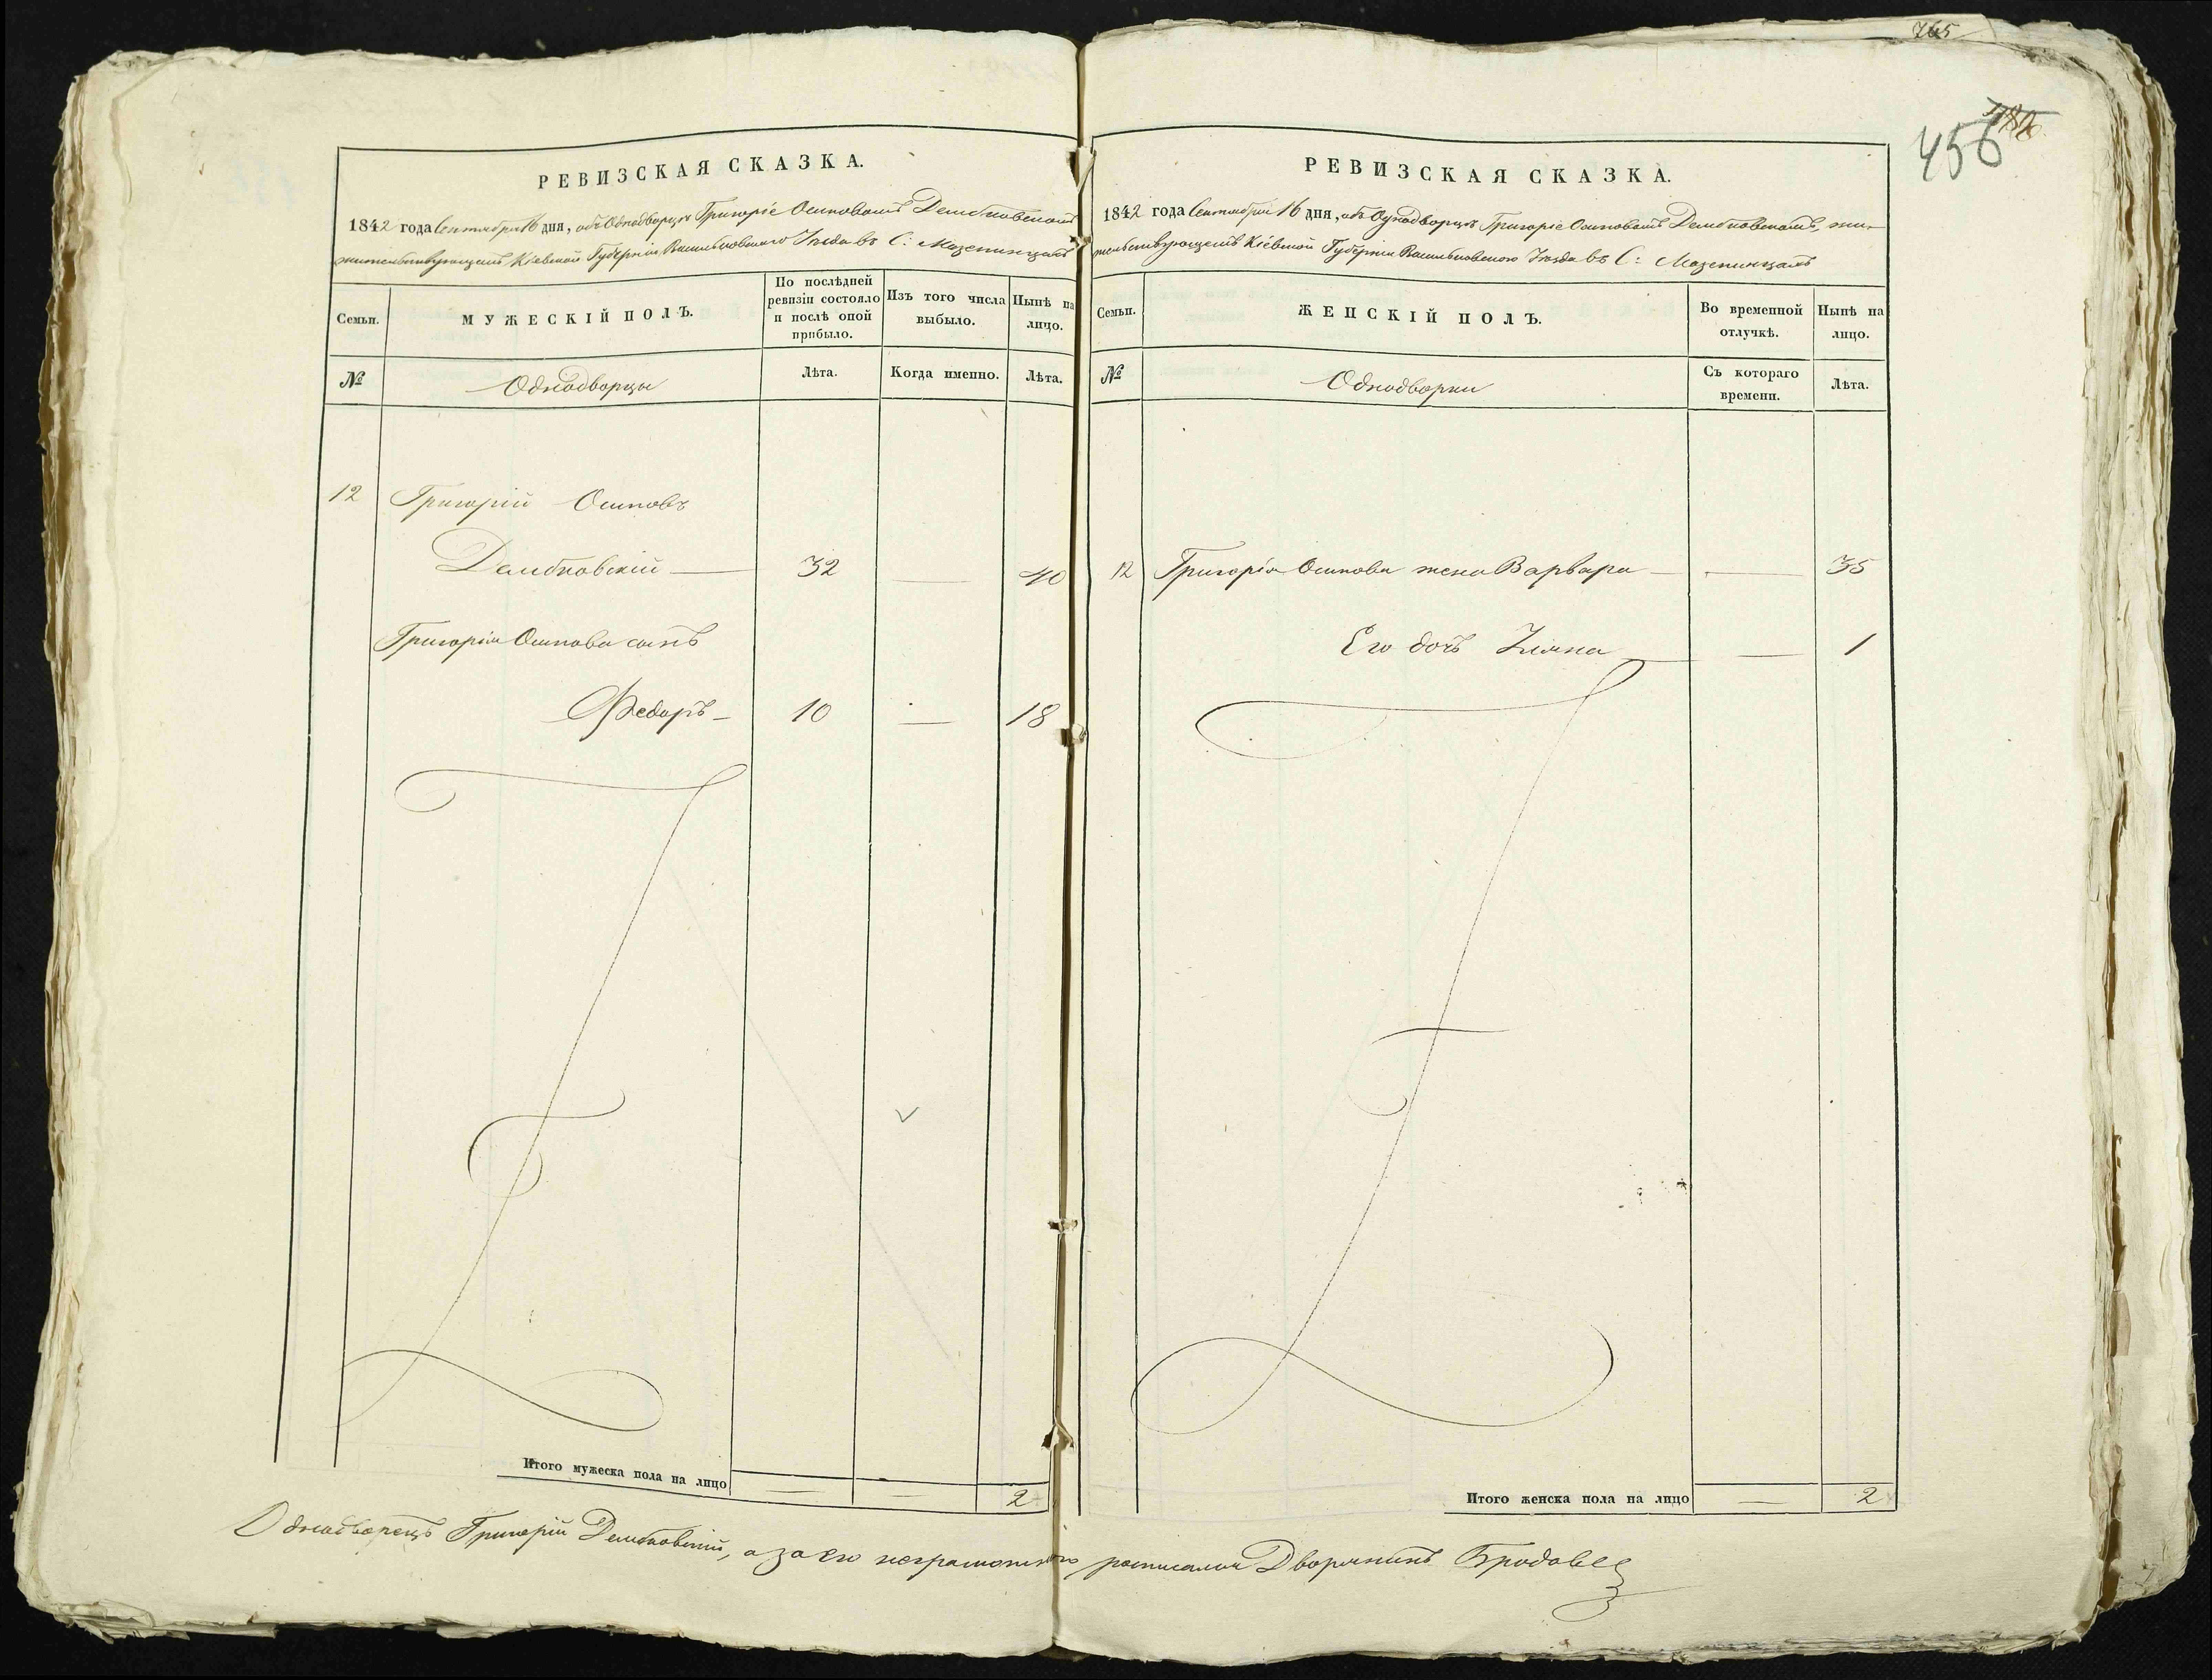 765
456
РЕВИЗСКАЯ СКАЗКА.
1842 года Сентября 16 дня, объ Однодворцѣ Григоріе Осиповомъ Дембновскомъ
жительствующемъ Кіевской Губерніи Васильковскаго Уѣзда въ С: Мазепинцахъ
Семьи.
МУЖЕСКІЙ ПОЛЪ.
По послѣдней ревизіи состояло и послѣ оной прибыло.
Изъ того числа выбыло.
Нынѣ на лицо.
№
Однодворцы
Лѣта.
Когда именно.
Лѣта.
12 Григорій Осиповъ
Дембновскій — 32 — 40
Григорія Осипова сынъ
Федоръ — 10 — 18
Итого мужеска пола на лицо — — 2
РЕВИЗСКАЯ СКАЗКА.
1842 года Сентября 16 дня, объ Однодворцѣ Григоріе Осиповомъ Дембновскомъ, жи-
тельствующемъ Кіевской Губерніи Васильковскаго Уѣзда въ С: Мазепинцахъ
Семьи.
ЖЕНСКІЙ ПОЛЪ.
Во временной отлучкѣ.
Нынѣ на лицо.
№
Однодворки
Съ котораго времени.
Лѣта.
12 Григорія Осипова жена Варвара — — 35
Его дочь Уляна — — 1
Итого женска пола на лицо — 2
Однодворецъ Григорій Дембновскій, а за его неграмотного росписался Дворянинъ Бродовс